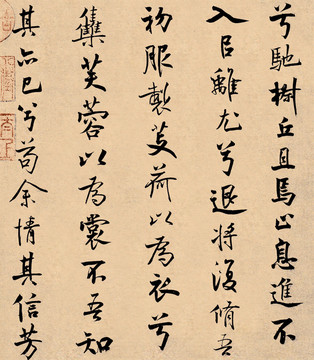 兮馳椒丘且焉止息進不
入㠯離尤兮退將復脩吾
初服製芰荷以為衣兮
集芙蓉以為裳不吾知
其亦已兮苟余情其信芳